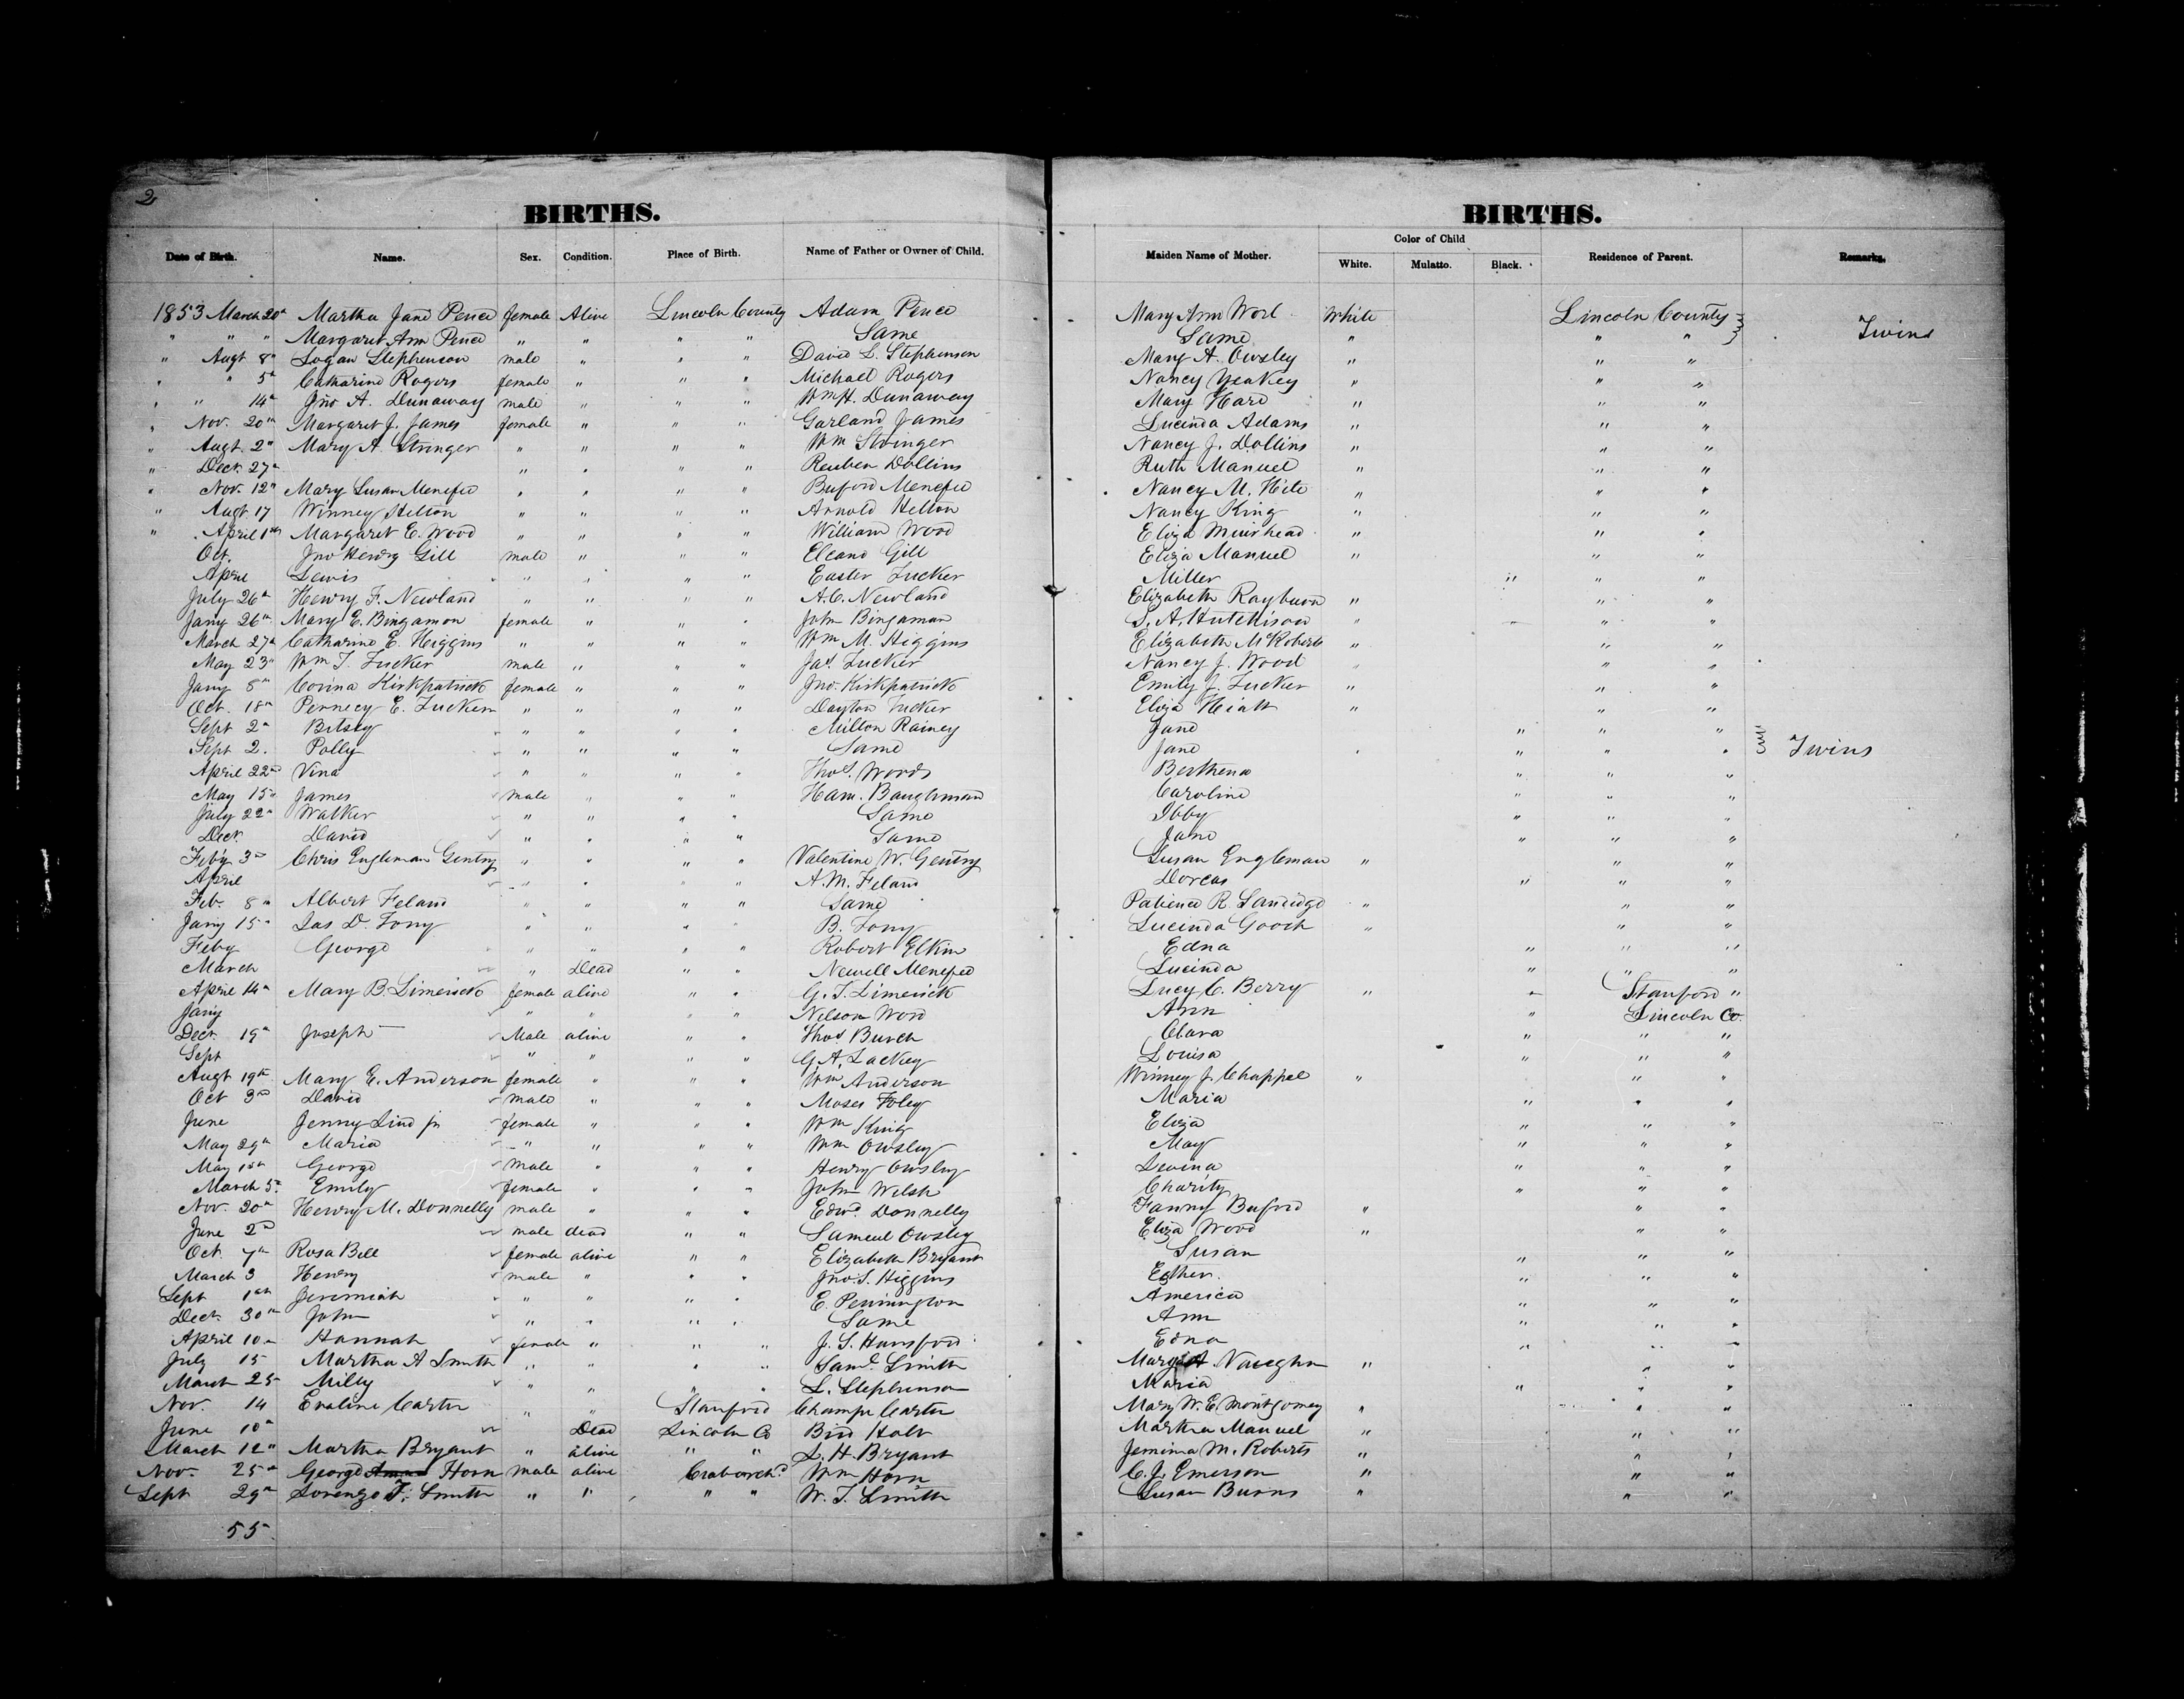 2
BIRTHS. BIRTHS.
Date of Birth. Name. Sex. Condition. Place of Birth. Name of Father or Owner of Child. Maiden Name of Mother. Color of Child White. Mulatto. Black. Residence of Parent. Remarks.
1853 March 20th Martha Jane Pence female Alive Lincoln County Adam Pence Mary Ann Worl White Lincoln County
" " " Margaret Ann Pence " " " " Same Same " " " Twins
" Augt 8th Logan Stephenson male " " " David L. Stephenson Mary A. Owsley " " "
" " 5th Catharine Rogers female " " " Michael Rogers Nancy Yeakey " " "
" " 14th Jno A. Dunaway male " " " Wm H. Dunaway Mary Hard " " "
" Nov. 20th Margaret J. James female " " " Garland James Lucinda Adams " " "
" Augt 2nd Mary A. Stringer " " " " Wm Stringer Nancy J. Dollins " " "
" Dect 27th " " " " Reuben Dollins Ruth Manuel " " "
" Nov. 12th Mary Susan Menefee " " " " Buford Menefee Nancy M. Hite " " "
" Augt 17 Winney Helton " " " " Arnold Helton Nancy King " " "
" April 1st Margaret E. Wood " " " " William Wood Eliza Muirhead " " "
Oct. Jno Henry Gill male " " " Eleano Gill Eliza Manuel " " "
April Lewis " " " " Easter Tucker Miller " " "
July 26th Henry F. Newland " " " " A. C. Newland Elizabeth Rayburn " " "
Jany 26th Mary E. Bingamon female " " " John Bingaman S. A. Hutchison " " "
March 27th Catharine E. Higgins " " " " Wm M. Higgins Elizabeth McRoberts " " "
May 23rd Wm T. Tucker male " " " Jas. Tucker Nancy J. Wood " " "
Jany 8th Corina Kirkpatrick female " " " Jno. Kirkpatrick Emily J. Tucker " " "
Oct. 18th Pernecy E. Tucker " " " " Dayton Tucker Eliza Hiatt " " "
Sept 2nd Betsey " " " " Milton Rainey Jane " " "
Sept 2. Polly " " " " Same Jane " " " Twins
April 22nd Vina " " " " Thos. Woods Berthena " " "
May 15th James male " " " Ham. Baughman Caroline " " "
July 22nd Walker " " " " Same Ibby " " "
Dect. David " " " " Same Jane " " "
Feby 3rd Chris Engleman Gentry " " " " Valentine W. Gentry Susan Engleman " " "
April " " " " A. M. Feland Dorcas " " "
Feb. 8th Albert Feland " " " " Same Patience R. Sandidge " " "
Jany 15th Jas D. Tony " " " " B. Tony Lucinda Gooch " " "
Feby George " " " " Robert Elkin Edna " " "
March " Dead " " Newell Menefee Lucinda " " "
April 14th Mary B. Limerick female alive " " G. T. Limerick Lucy C. Berry " Stanford "
Jany " " " " Nelson Word Ann " Lincoln Co.
Dect. 19th Joseph Male alive " " Thos Burch Clara " " "
Sept " " " " G. A. Lackey Louisa " " "
Augt 19th Mary E. Anderson female " " " Wm Anderson Winney J. Chappel " " "
Oct 3rd David male " " " Moses Foley Maria " " "
June Jenny Lind jr female " " " Wm King Eliza " " "
May 29th Maria " " " " Wm Owsley May " " "
May 1st George Male " " " Henry Owsley Levina " " "
March 5th Emily female " " " John Welsh Charity " " "
Nov. 20th Henry M. Donnelly male " " " Edwd. Donnelly Fanny Buford " " "
June 2nd male dead " " Samuel Owsley Eliza Wood " " "
Oct. 7th Rosa Bell female alive " " Elizabeth Bryant Susan " " "
March 3 Henry male " " " Jno. S. Higgins Esther. " " "
Sept 1st Jeremiah " " " " E. Pennington America " " "
Dect. 30th John " " " " Same Ann " " "
April 10th Hannah female " " " J. S. Hansford Edna " " "
July 15 Martha A Smith " " " " Saml. Smith Margt Vaughn " " "
March 25 Milly " " " " L. Stephenson Maria " " "
Nov. 14 Evaline Carter " " Stanford Champ Carter Mary W. E. Montgomey " " "
June 10th Dead Lincoln Co Bird Holt Martha Manuel " " "
March 12th Martha Bryant " alive " " L. H. Bryant Jemima M. Roberts " " "
Nov. 25th George Horn male alive Craborchd. Wm Horn C. J. Emerson " " "
Sept 29th Lorenzo T. Smith " " " " W. T. Smith Susan Burns " " "
55